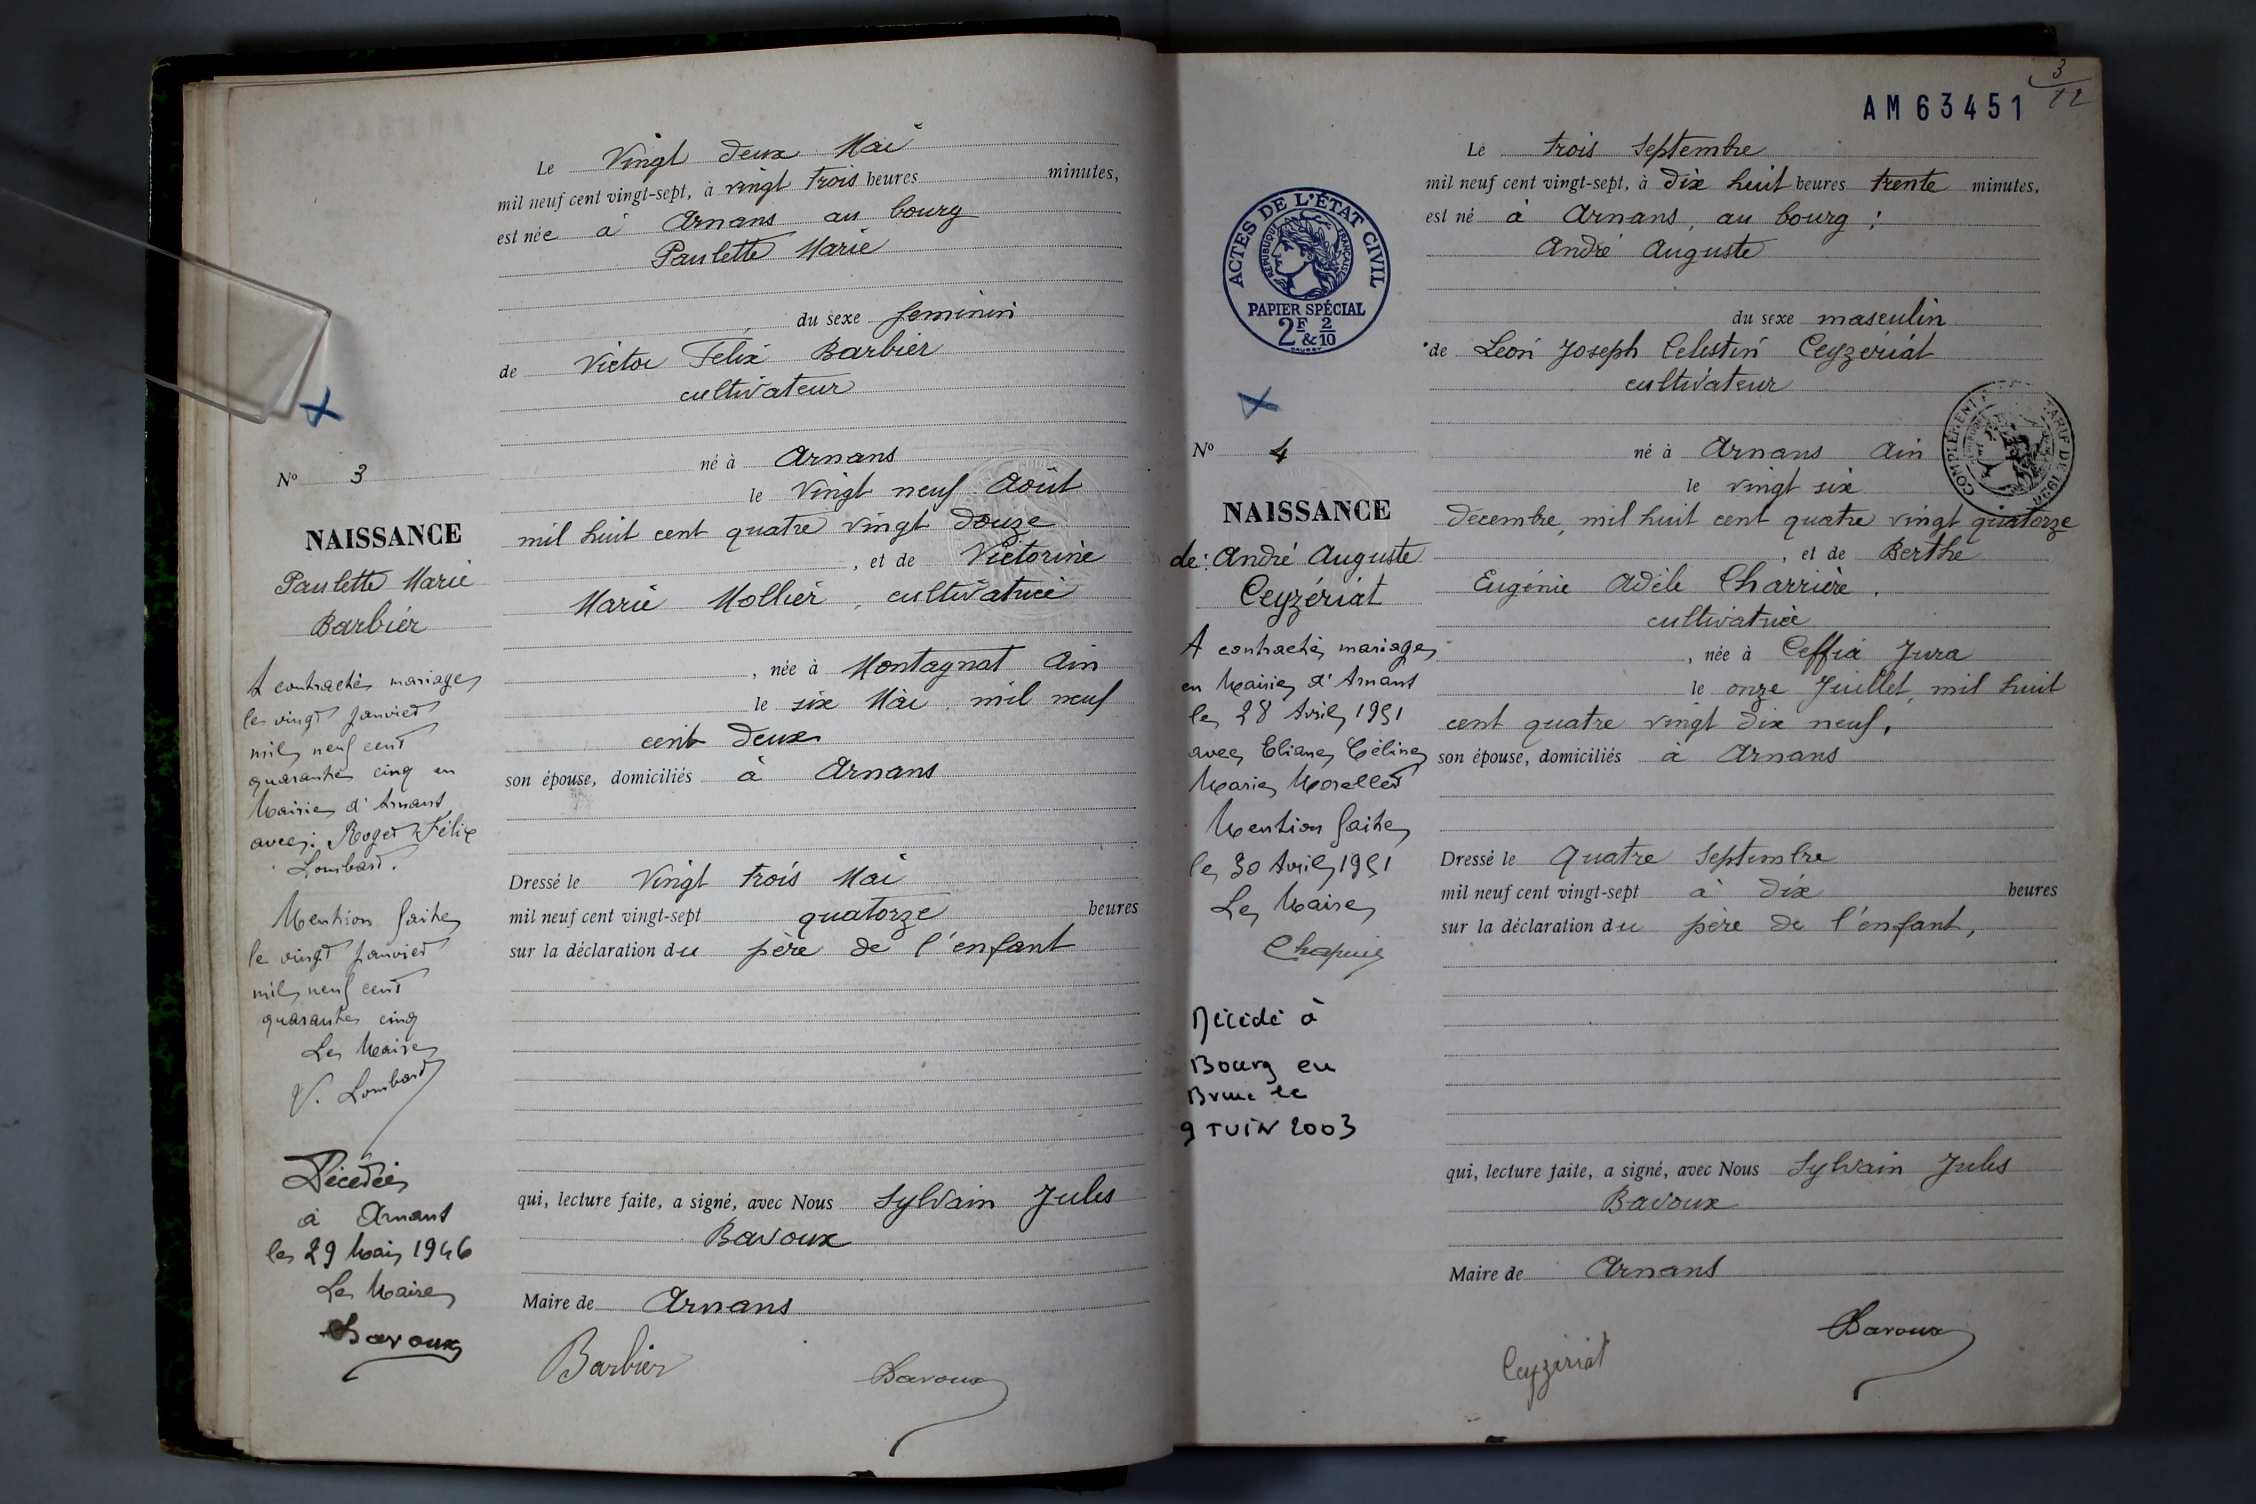 Le Vingt deux Mai
mil neuf cent vingt-sept, à vingt trois heures minutes,
est née à Arnans au bourg
Paulette Marie
du sexe feminin
de Victor Felix Barbier
cultivateur
né à Arnans
le Vingt neuf Août
mil huit cent quatre vingt douze
, et de Victorine
Marie Mollier, cultivatrice
, née à Montagnat Ain
le six Mai, mil neuf
cent deux
son épouse, domiciliés à Arnans
Dressé le Vingt trois Mai
mil neuf cent vingt-sept quatorze heures
sur la déclaration du père de l'enfant
qui, lecture faite, a signé, avec Nous Sylvain Jules
Bavoux
Maire de Arnans
Barbier
Bavoux
No 3
NAISSANCE
Paulette Marie
Barbier
A contracté mariage
le vingt janvier
mil neuf cent
quarante cinq en
Mairie d'Arnans
avec: Roger Félix
Lombard.
Mention faite
le vingt janvier
mil neuf cent
quarante cinq
Le Maire
V. Lombard
Décédée
à Arnans
le 29 Mai 1946
Le Maire
Bavoux
AM63451
3
12
ACTES DE L'ÉTAT CIVIL
RÉPUBLIQUE FRANÇAISE
PAPIER SPÉCIAL
2F & 2/10
No 4
NAISSANCE
de: André Auguste
Ceyzériat
A contracté mariage
en Mairie d'Arnans
le 28 Avril 1951
avec Eliane Céline
Marie Morellet
Mention faite
le 30 Avril 1951
Le Maire
Chapuis
Décédé à
Bourg en
Bresse le
9 JUIN 2003
Le trois Septembre
mil neuf cent vingt-sept, à dix huit heures trente minutes,
est né à Arnans, au bourg:
André Auguste
du sexe masculin
de Léon Joseph Celestin Ceyzériat
cultivateur
né à Arnans Ain
le vingt six
Décembre, mil huit cent quatre vingt quatorze
, et de Berthe
Eugénie Adèle Charrière.
cultivatrice
, née à Ceffia Jura
le onze Juillet, mil huit
cent quatre vingt dix neuf,
son épouse, domiciliés à Arnans
Dressé le Quatre Septembre
mil neuf cent vingt-sept à dix heures
sur la déclaration du père de l'enfant,
qui, lecture faite, a signé, avec Nous Sylvain Jules
Bavoux
Maire de Arnans
Ceyzériat
Bavoux